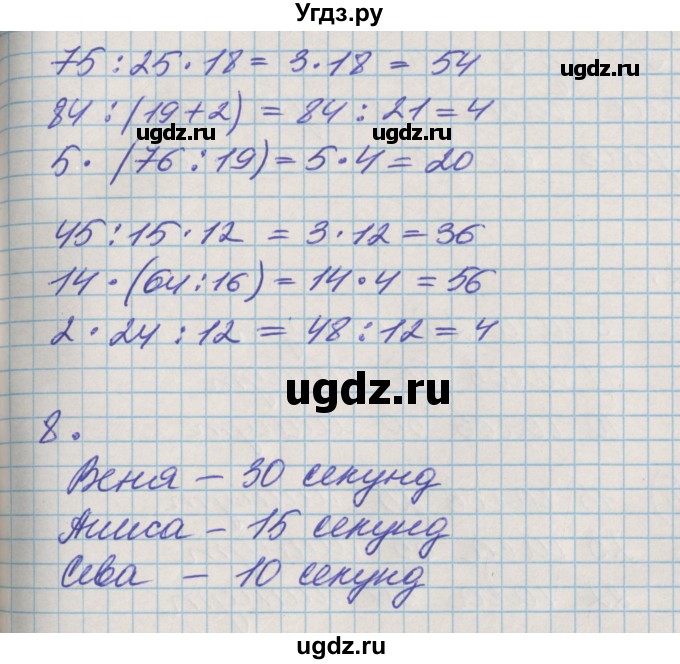 Угдз.ру
75 : 25 · 18 = 3 · 18 = 54
ugdz.ru
84 : (19 + 2) = 84 : 21 = 4
ugdz.ru ugdz.ru
5 · (76 : 19) = 5 · 4 = 20
45 : 15 · 12 = 3 · 12 = 36
14 · (64 : 16) = 14 · 4 = 56
2 · 24 : 12 = 48 : 12 = 4
ugdz.ru
8.
Веня – 30 секунд
Алиса – 15 секунд
Сева – 10 секунд
ugdz.ru